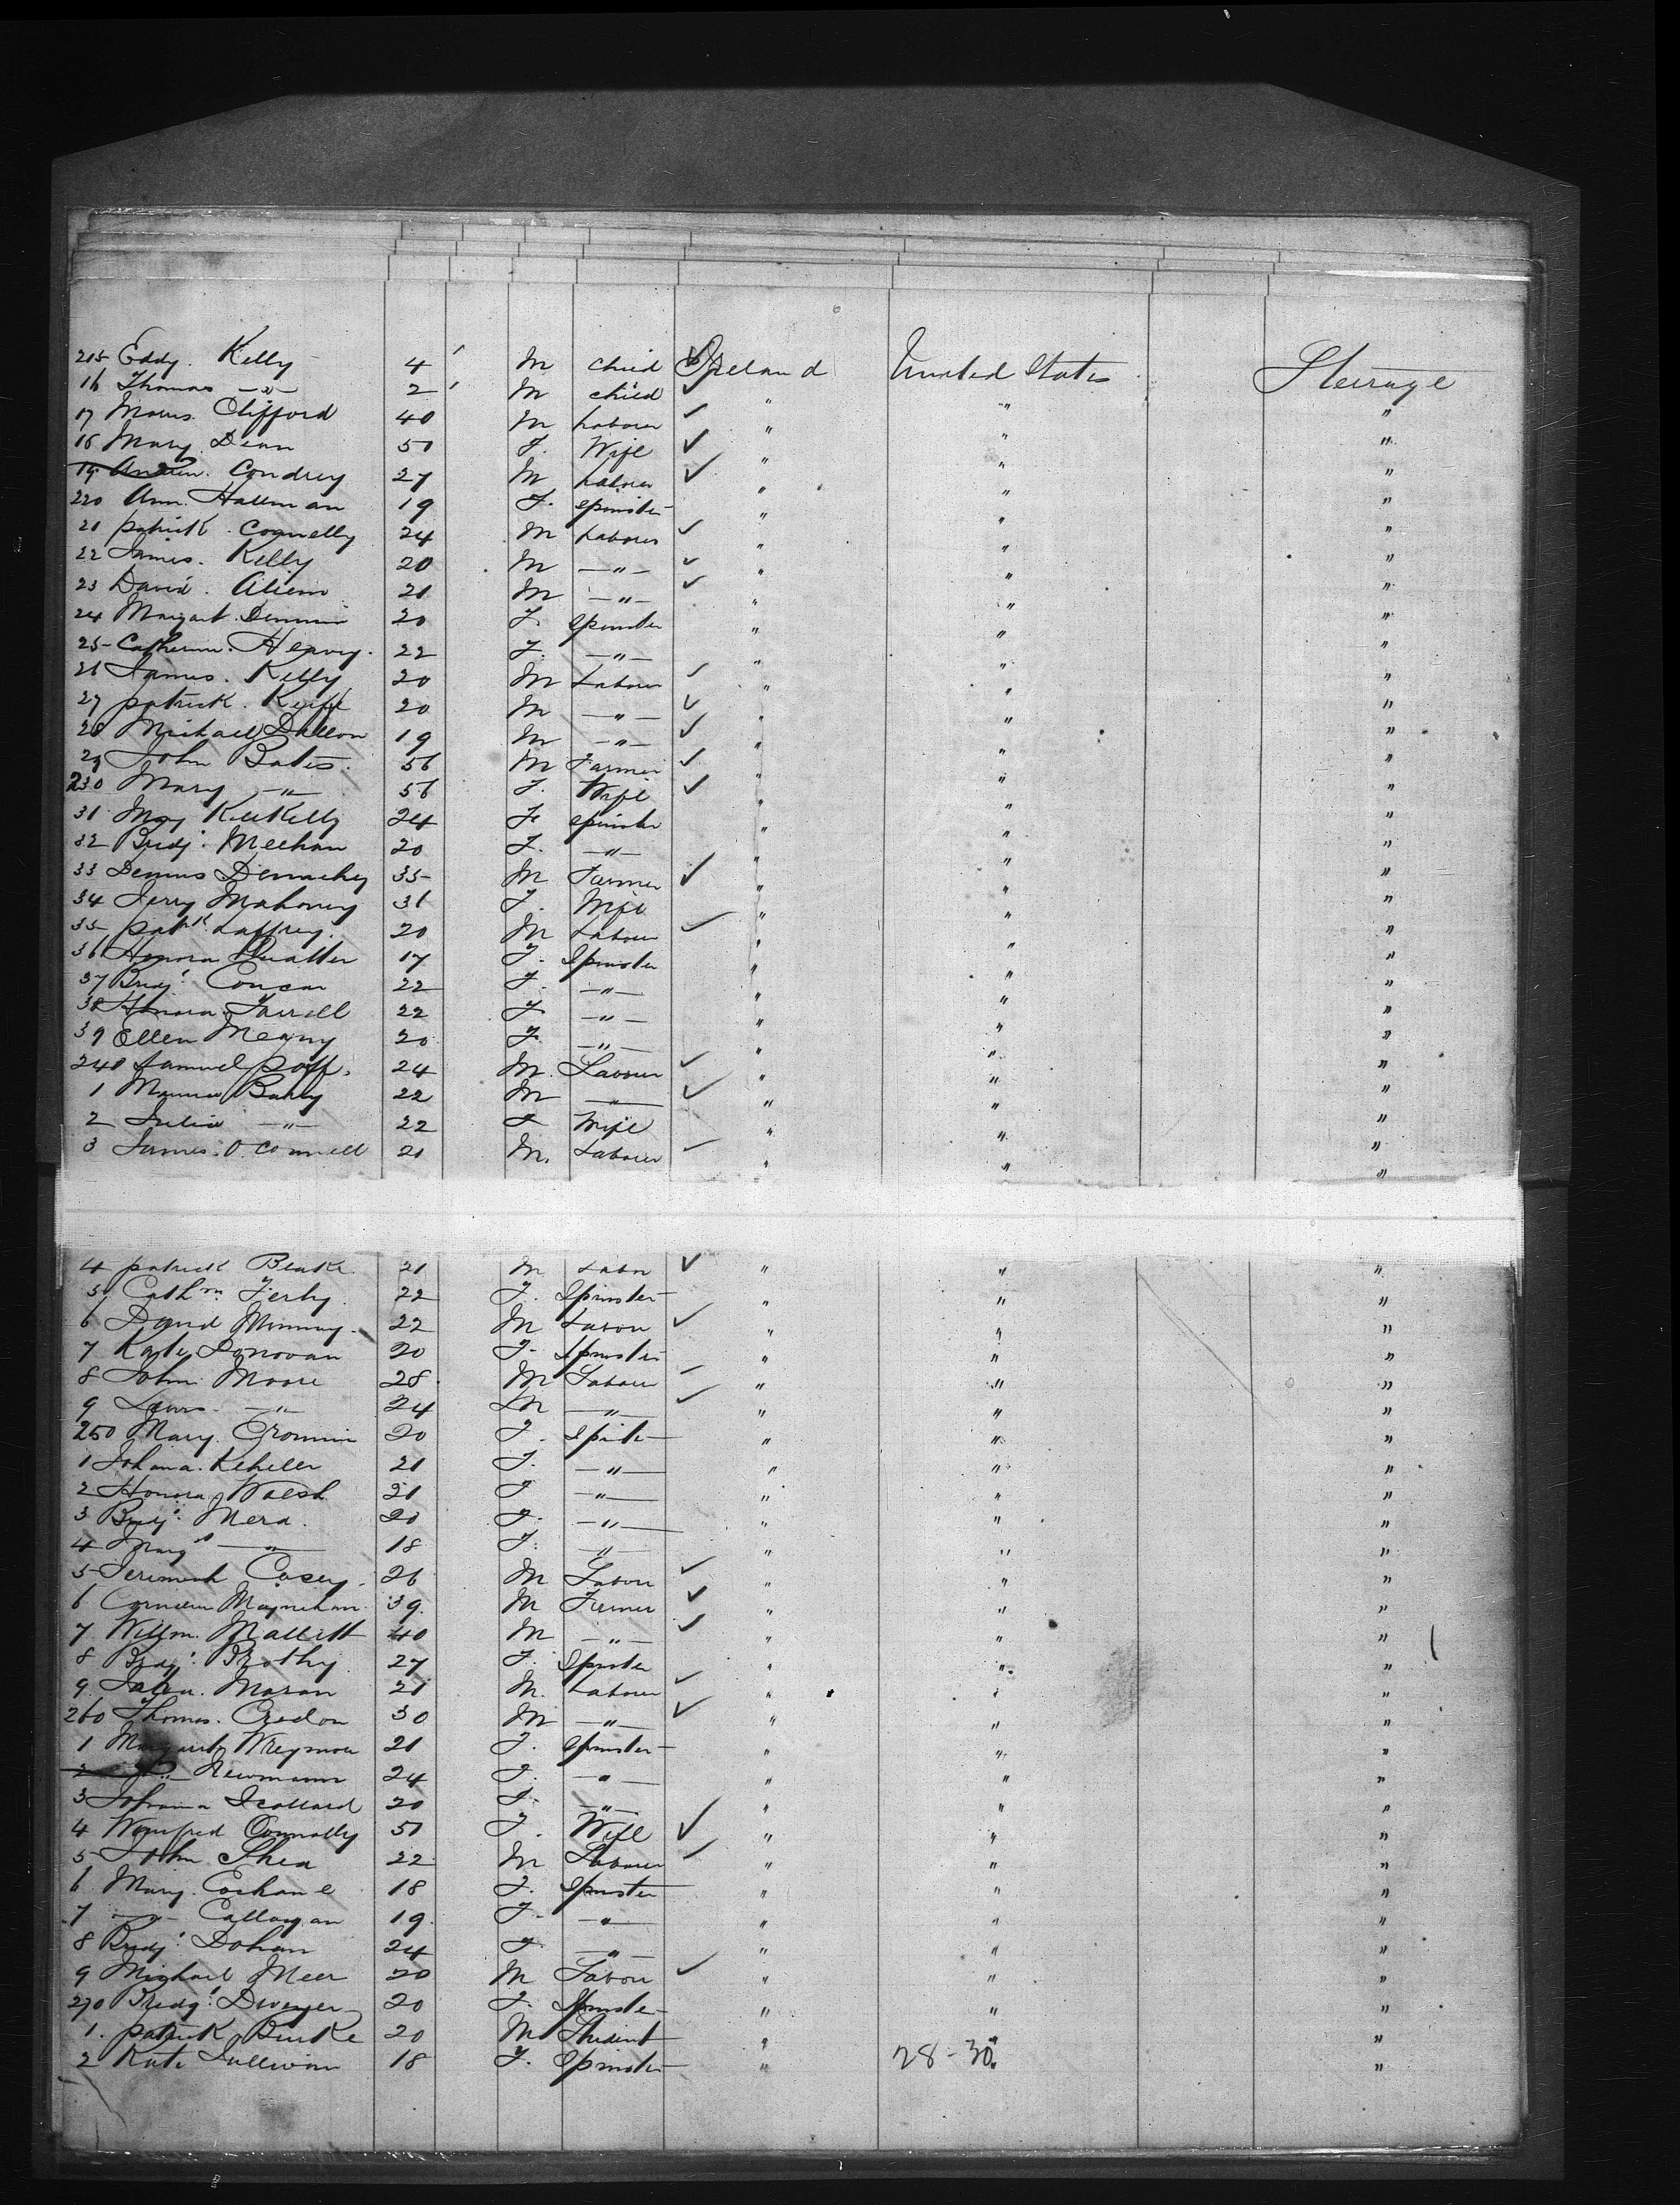 215 Eddy. Kelly 4 M child Ireland United States Steerage
16 Thomas —"— 2 M child " " "
17 Maurs. Clifford 40 M Labourer " " "
18 Mary. Dean 50 F. Wife " " "
19 Condrey 27 M Labourer " " "
220 Ann. 19 F. Spinster " " "
21 patrick. Connelly 24 M Labourer " " "
22 James. Kelly 20 M —"— " " "
23 David. 21 M —"— " " "
24 Margart. 20 F. Spinster " " "
25 Catherin. Heavy. 22 F. —"— " " "
26 James. Kelly 20 M Labourer " " "
27 patrick. Keiffe 20 M —"— " " "
28 Michael Dillon 19 M —"— " " "
29 John Bates. 56 M Farmer " " "
230 Mary —"— 56 F. Wife " " "
31 May 24 F. Spinster " " "
32 Bridj: Meehan 20 F. —"— " " "
33 Dennis 35 M Farmer " " "
34 Jerry Mahoney 31 F. Wife " " "
35 patk. Laffrey. 20 M Labour " " "
36 Honora 17 F. Spinster " " "
37 Bridj: Concar 22 F. —"— " " "
38 Honora Farrell 22 F. —"— " " "
39 Ellen Meany 20 F. —"— " " "
240 Samuel 24 M. Labour " " "
1 Maurice 22 M —"— " " "
2 Julia —"— 22 F Wife " " "
3 James. O. Connell 21 M. Labourer " " "
4 patrick 21 M Labor " " "
5 Cathn. 22 F. Spinster " " "
6 David 22 M Labour " " "
7 Kate Donovan 20 F. Spinster " " "
8 John Moore 28 M Labour " " "
9 Lewis. —"— 24 M —"— " " "
250 Mary. Cronnin 20 F. Spinster " " "
1 Johana. Keheler 21 F. —"— " " "
2 Honora Walsh 21 F —"— " " "
3 Bridj: Mera. 20 F. —"— " " "
4 Margt —"— 18 F. —"— " " "
5 Jerimiah Casey. 26 M Labour " " "
6 Maynehan. 39. M Farmer " " "
7 Willm. Mallett 40 M —"— " " "
8 Bridj: 27 F. Spinster " " "
9 Moran 21 M. Labour " " "
260 Thomas. Credon 30 M —"— " " "
1 21 F. Spinster " " "
2 Newmann 24 F. —"— " " "
3 Johanna Scollard 20 F. —"— " " "
4 Winifred Connolly 50 F. Wife " " "
5 John Shea 22 M Labourer " " "
6 Mary. 18 F. Spinster " " "
7 —"— Callagan 19. F. —"— " " "
8 Bridj: Dohan 24 F. —"— " " "
9 Michael Meer 20 M Labour " " "
270 Bridg: Dwyer 20 F. Spinster " " "
1. patrick Burke 20 M Student " " "
2 Kate Sullivan 18 F. Spinster " " "
28-30